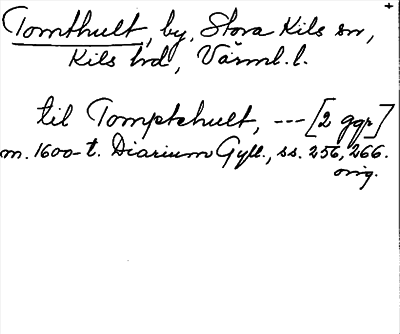 Tomthult, by, Stora Kils sn,
Kils hd, Värml. l.
til Tomptehult, --- [2 ggr]
m. 1600-t. Diarium Gyll., ss. 256, 266.
orig.